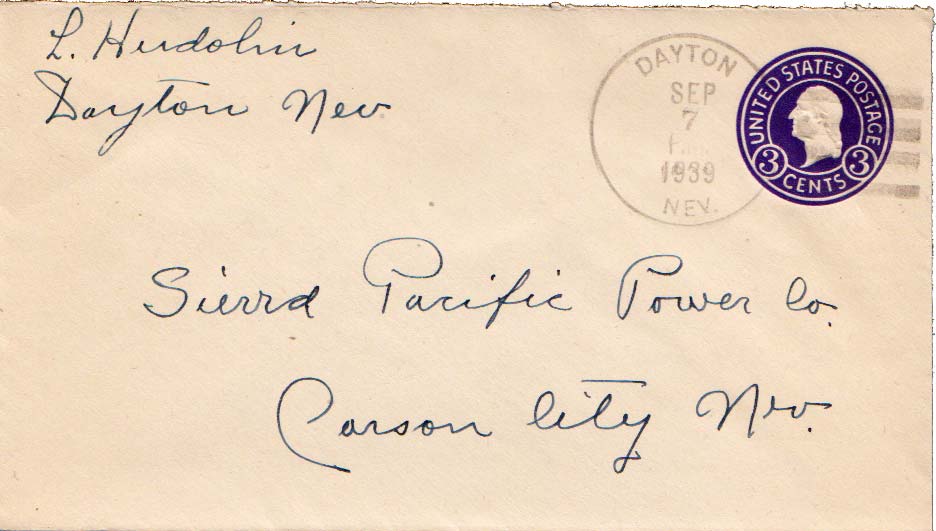 L. Hudolin
Dayton Nev.
DAYTON
SEP
7
1939
NEV.
UNITED STATES POSTAGE
3 3
CENTS
Sierra Pacific Power Co.
Carson City Nev.